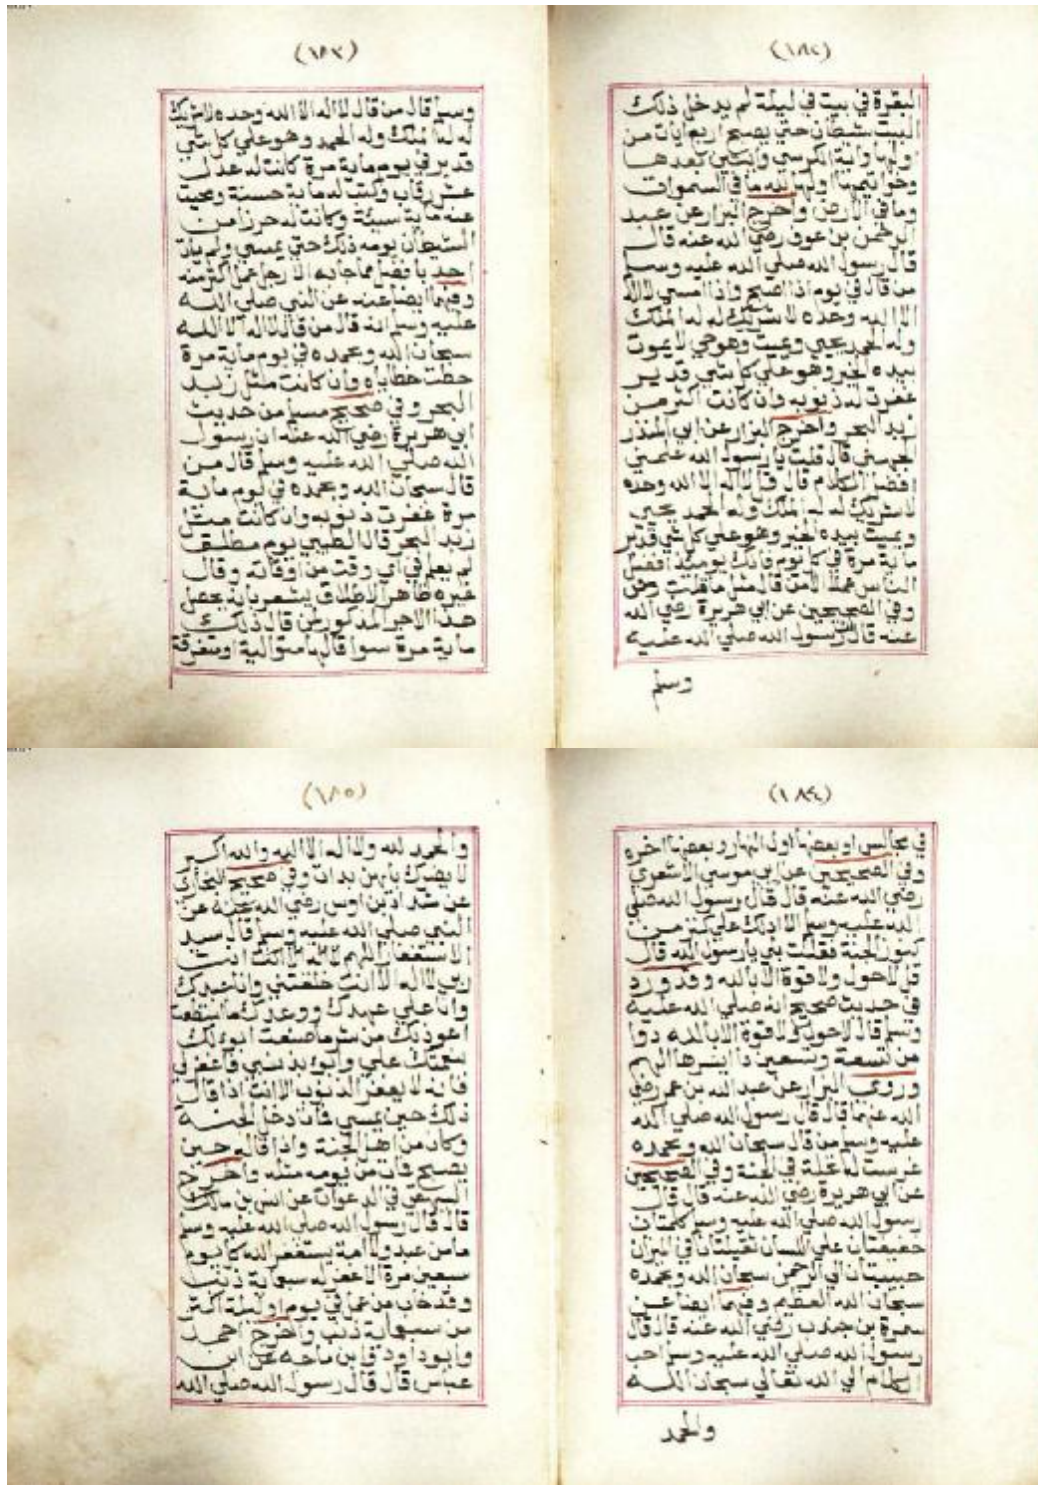 (١٨٢)
البقرة في بيت في ليلة لم يدخل ذلك
البيت شيطان حتي يصبح اربع ايات من
اولها واية الكرسي وايتين بعدها
وخواتيمها اولها لله ما في السموات
وما في الارض واخرج البزار عن عبد
الرحمن بن عوف رضي الله عنه قال
قال رسول الله صلي الله عليه وسلم
من قال في يوم اذا اصبح واذا امسي لا اله
الا الله وحده لا شريك له له الملك
وله الحمد يحيي ويميت وهو حي لا يموت
بيده الخير وهو علي كل شي قدير
غفرت له ذنوبه وان كانت اكثر من
زبد البحر واخرج البزار عن ابي المنذر
الجهني قال قلت يا رسول الله علمني
افضل الكلام قال قل لا اله الا الله وحده
لا شريك له له الملك وله الحمد يحيي
ويميت بيده الخير وهو علي كل شي قدير
ماية مرة في كل يوم فانك يوميذ افضل
الناس عملا الا من قال مثل ما قلت
وفي الصحيحين عن ابي هريرة رضي الله
عنه قال رسول الله صلي الله عليه
وسلم
(١٨٣)
وسلم قال من قال لا اله الا الله وحده لا شريك
له له الملك وله الحمد وهو علي كل شي
قدير في يوم ماية مرة كانت له عدل
عشر رقاب وكتبت له ماية حسنة ومحيت
عنه ماية سيئة وكانت له حرزا من
الشيطان يومه ذلك حتي يمسي ولم يات
احد بافضل مما جا به الا رجل عمل اكثر منه
وفيهما ايضا عنه عن النبي صلي الله
عليه وسلم انه قال من قال لا اله الا الله
سبحان الله وبحمده في يوم ماية مرة
حطت خطاياه وان كانت مثل زبد
البحر وفي صحيح مسلم من حديث
ابي هريرة رضي الله عنه ان رسول
الله صلي الله عليه وسلم قال من
قال سبحان الله وبحمده في يوم ماية
مرة غفرت ذنوبه وان كانت مثل
زبد البحر قال الطيبي يوم مطلق
لم يعلم في اي وقت من اوقاته وقال
غيره ظاهر الاطلاق يشعر بانه يحصل
هذا الاجر المذكور لمن قال ذلك
ماية مرة سوا قالها متوالية او متفرقة
(١٨٤)
في مجالس او بعضها اول النهار وبعضها اخره
وفي الصحيحين عن ابي موسي الاشعري
رضي الله عنه قال قال رسول الله صلي
الله عليه وسلم الا ادلك علي كنز من
كنوز الجنة فقلت بلي يا رسول الله قال
قل لا حول ولا قوة الا بالله وقد ورد
في حديث صحيح انه صلي الله عليه
وسلم قال لا حول ولا قوة الا بالله دوا
من تسعة وتسعين دا ايسرها الهم
وروي البزار عن عبد الله بن عمر رضي
الله عنهما قال قال رسول الله صلي الله
عليه وسلم من قال سبحان الله وبحمده
غرست له نخلة في الجنة وفي الصحيحين
عن ابي هريرة رضي الله عنه قال قال
رسول الله صلي الله عليه وسلم كلمتان
خفيفتان علي اللسان ثقيلتان في الميزان
حبيبتان الي الرحمن سبحان الله وبحمده
سبحان الله العظيم وفيهما ايضا عن
سمرة بن جندب رضي الله عنه قال قال
رسول الله صلي الله عليه وسلم احب
الكلام الي الله تعالي سبحان الله
والحمد
(١٨٥)
والحمد لله ولا اله الا الله والله اكبر
لا يضرك بايهن بدات وفي صحيح البخاري
عن شداد بن اوس رضي الله عنه عن
النبي صلي الله عليه وسلم قال سيد
الاستغفار اللهم لا اله الا انت انت
ربي لا اله الا انت خلقتني وانا عبدك
وانا علي عهدك ووعدك ما استطعت
اعوذ بك من شر ما صنعت ابوء لك
بنعمتك علي وابوء بذنبي فاغفر لي
فانه لا يغفر الذنوب الا انت اذا قال
ذلك حين يمسي فمات دخل الجنة
وكان من اهل الجنة واذا قاله حين
يصبح فمات من يومه مثله واخرج
في الدعوات عن انس بن مالك
قال قال رسول الله صلي الله عليه وسلم
ما من عبد ولا امة يستغفر الله كل يوم
سبعين مرة الا غفر له سبعماية ذنب
وقد خاب من عمل في يوم او ليلة اكثر
من سبعماية ذنب واخرج احمد
وابو داود وابن ماجه عن ابن
عباس قال قال رسول الله صلي الله